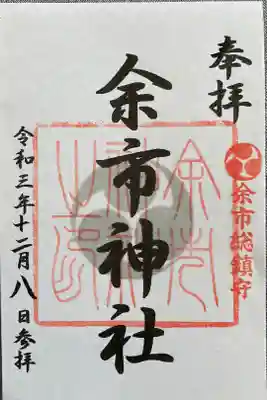 奉拝
余市総鎮守
余市神社
令和三年十二月八日参拝